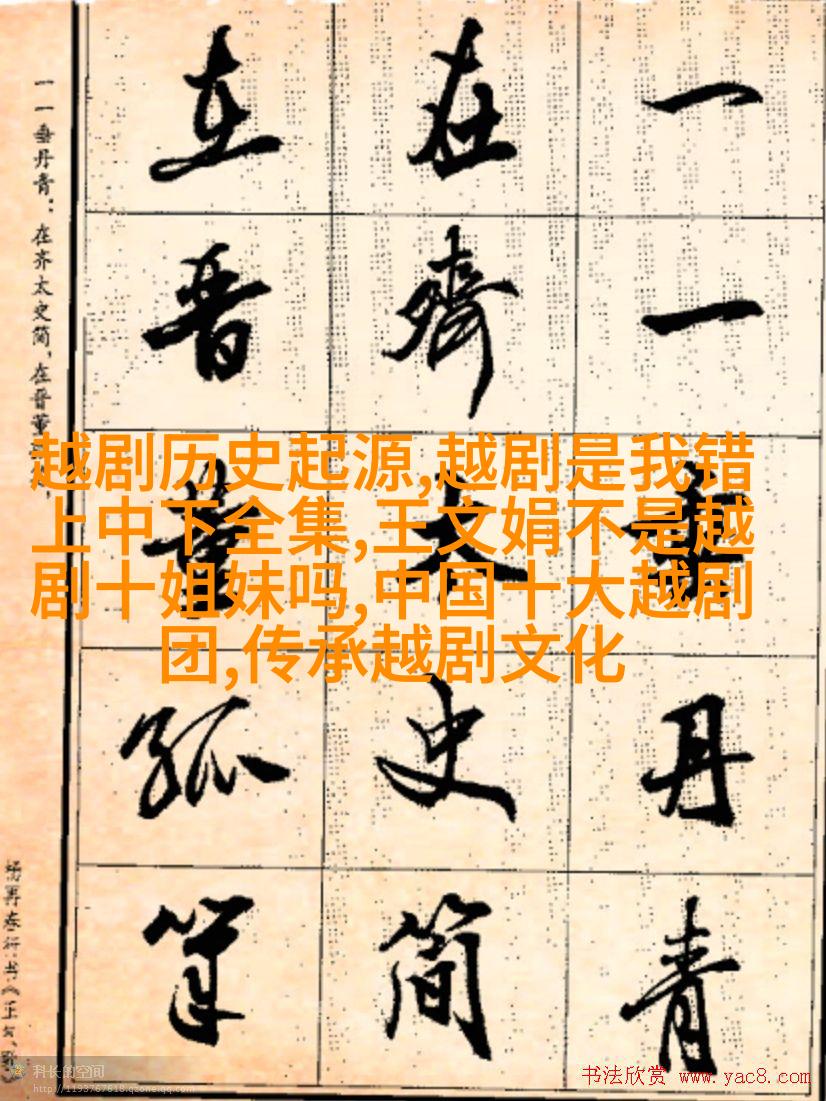 一一垂丹青
在齊太史简
在晋董狐筆
一一垂丹青：在齐太史简，在晋董
再春行书《正气
越剧历史起源,越剧是我错
上中下全集,王文娟不是越
剧十姐妹吗,中国十大越剧
团,传承越剧文化
科长的空间
http://1193767618.qzone.qq.com
书法欣赏 www.yac8.com